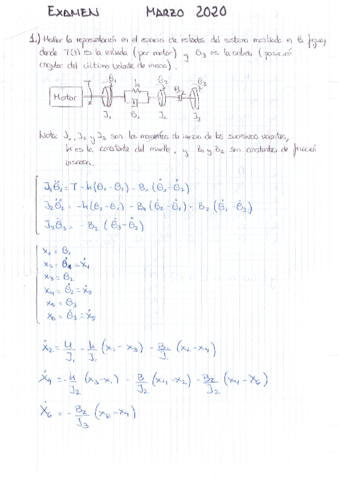 EXAMEN MARZO 2020
1.) Hallar la representación en el espacio de estados del sistema mostrado en la figura,
donde T(t) es la entrada (par motor) y θ3 es la salida (posición
angular del último volante de inercia).
T θ1 k θ2 θ3
Motor
J1 B1 J2 B2 J3
Nota: J1, J2 y J3 son los momentos de inercia de los sucesivos volantes,
k es la constante del muelle, y B1 y B2 son constantes de fricción
viscosa.
J1θ̈1 = T - k(θ1 - θ2) - B1(θ̇1 - θ̇2)
J2θ̈2 = -k(θ2 - θ1) - B1(θ̇2 - θ̇1) - B2(θ̇2 - θ̇3)
J3θ̈3 = - B2(θ̇3 - θ̇2)
x1 = θ1
x2 = θ̇1 = ẋ1
x3 = θ2
x4 = θ̇2 = ẋ3
x5 = θ3
x6 = θ̇3 = ẋ5
ẋ2 = u/J1 - k/J1 (x1 - x3) - B1/J1 (x2 - x4)
ẋ4 = -k/J2 (x3 - x1) - B1/J2 (x4 - x2) - B2/J2 (x4 - x6)
ẋ6 = - B2/J3 (x6 - x4)